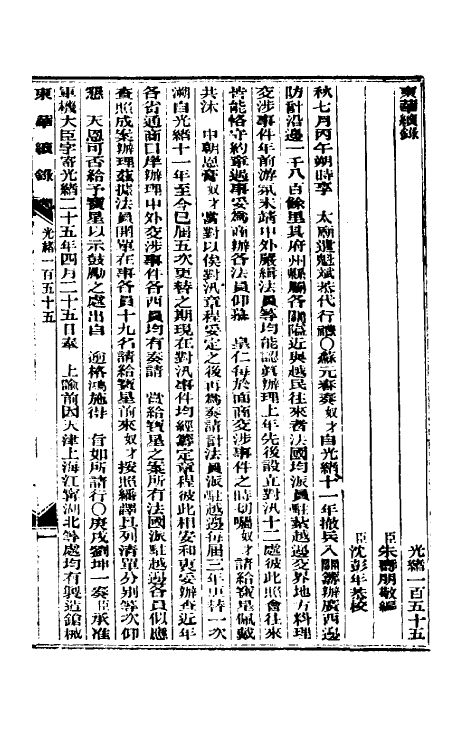 東華續錄
光緒一百五十五
臣朱壽朋敬編
臣沈彭年恭校
秋七月丙午朔時享　太廟遣魁斌恭代行禮〇蘇元春奏奴才自光緒十一年撤兵入關籌辦廣西邊
防計沿邊一千八百餘里其府州縣屬各關隘近與越民往來者法國均派員駐紮越邊交界地方料理
交涉事件年前游氛未靖中外嚴緝法員等均能認眞辦理上年先後設立對汛十二處彼此照會往來
皆能恪守約章遇事妥爲商辦各法員仰慕　皇仁每於面商交涉事件之時切囑奴才請給寶星佩戴
共沐　中朝恩奴才當對以俟對汛章程妥定之後再爲奏請計法員派駐越邊每屆三年更替一次
溯自光緒十一年至今已屆五次更替之期現在對汛事件均經籌定章程彼此相安和衷妥辦查近年
各省通商口岸辦理中外交涉事件各西員均有奏請　賞給寶星之案所有法國派駐越邊各員似應
查照成案辦理茲據法員開單在事各員十九名請給寶星前來奴才按照繙譯具列清單分別等次仰
懇　天恩可否給予寶星以示鼓勵之處出自　逾格鴻施得　旨如所請行〇庚戌劉坤一奏臣承准
軍機大臣字寄光緒二十五年四月二十五日奉　上諭前因天津上海江寧湖北等處均有製造鎗械
東華續錄　光緒一百五十五　一